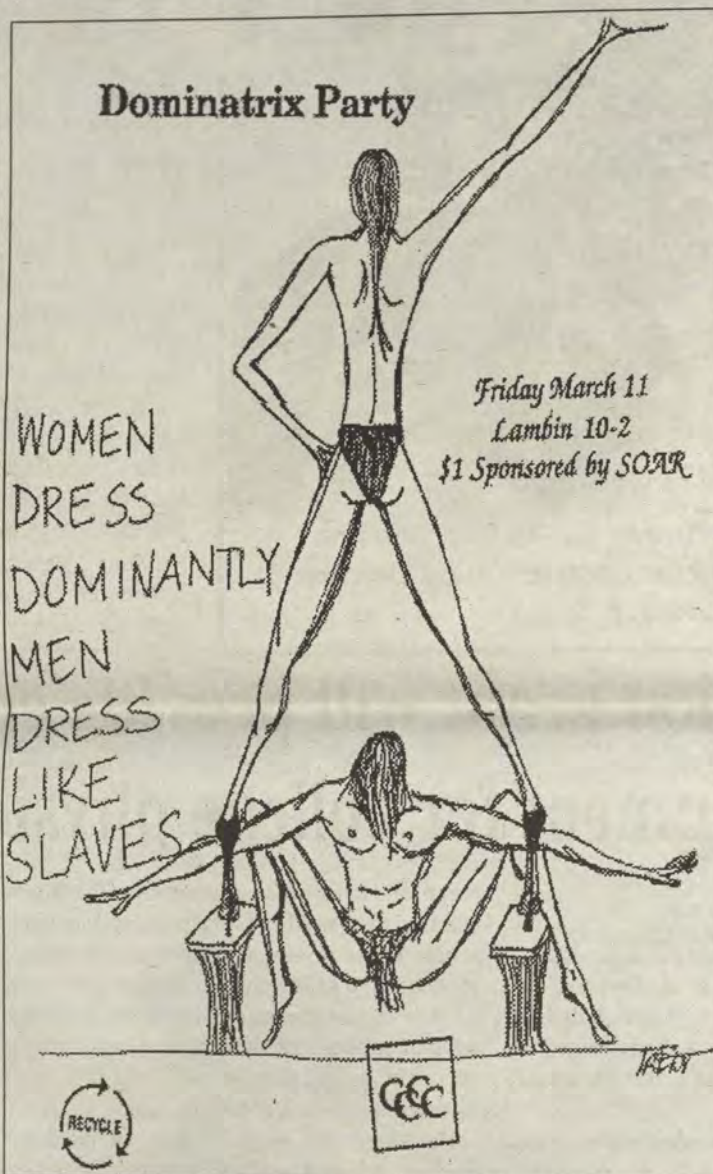 Dominatrix Party
Friday March 11
Lambin 10-2
$1 Sponsored by SOAR
WOMEN
DRESS
DOMINANTLY
MEN
DRESS
LIKE
SLAVES
RECYCLE
CCCC